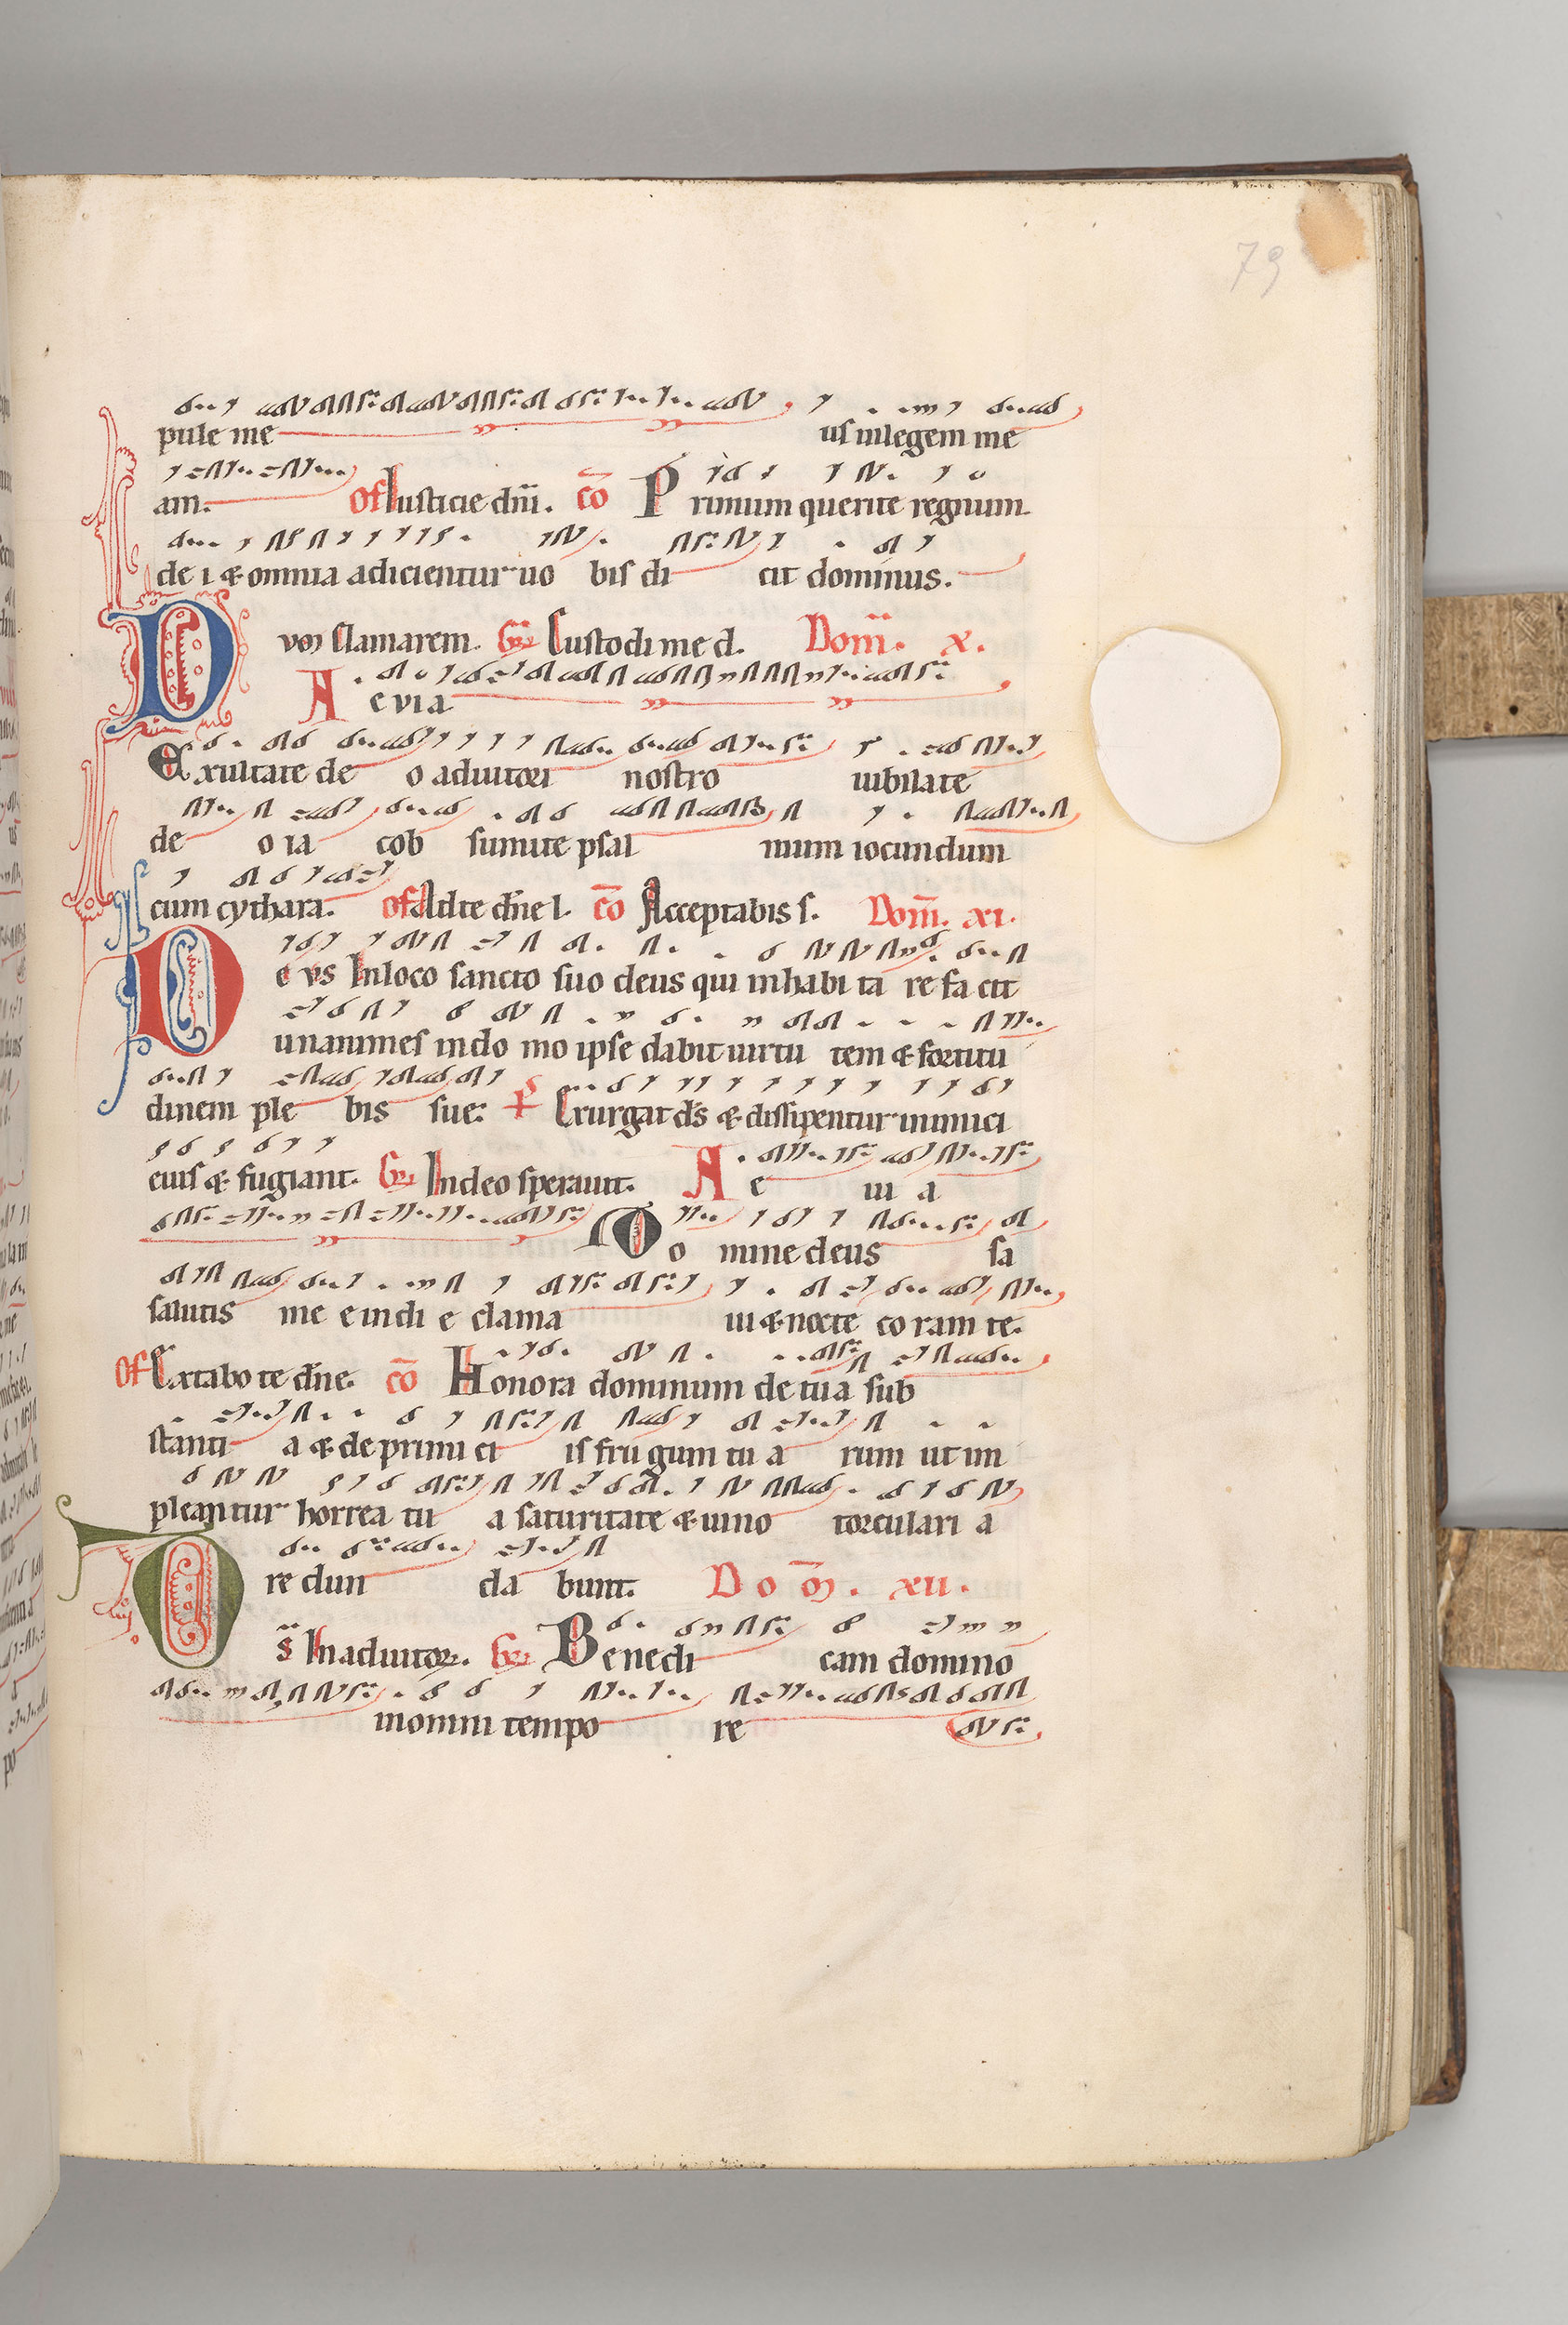 79
pule me us in legem me
am. Of Iusticie dñi. cō Primum querite regnum
de i & omnia adicientur uo bis di cit dominus.
Dum clamarem. Gr Custodi me d. Dom̄. x.
A e via
Exultate de o adiutori nostro iubilate
de o ia cob sumite psal mum iocundum
cum cythara. Of Ad te dñe l. cō Acceptabis s. Dom̄. xi.
Deus In loco sancto suo deus qui inhabi ta re fa cit
unanimes in do mo ipse dabit uirtu tem & fortitu
dinem ple bis sue: Ps Exurgat ds & dissipentur inimici
eius & fugiant. Gr In deo sperauit. A e ui a
Do mine deus sa
salutis me e in di e clama ui & nocte co ram te.
Of Exaltabo te dñe. cō Honora dominum de tua sub
stanti a & de primi ci is fru gum tu a rum ut im
pleantur horrea tu a saturitate & uino torculari a
re dun da bunt. Dom̄. xii.
Ds In adiutor. Gr Benedi cam domino
in omni tempo re